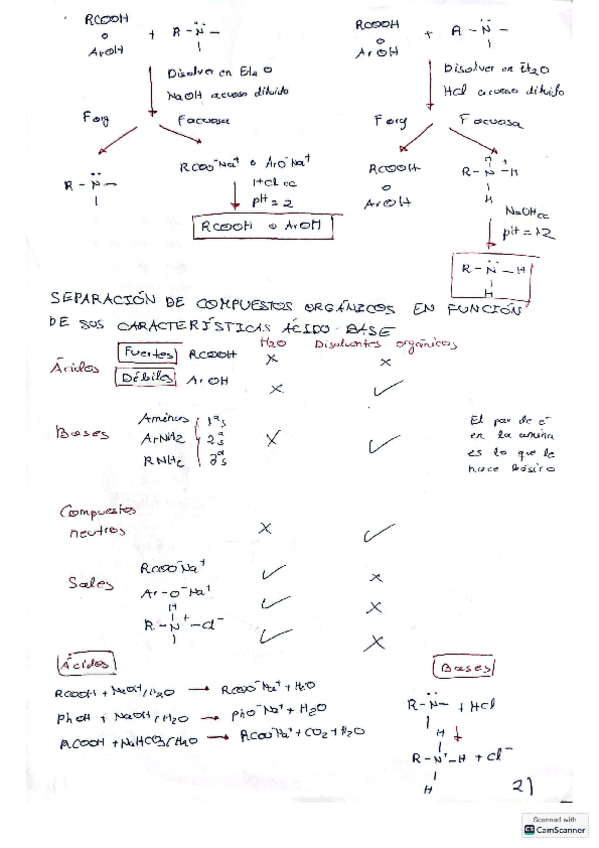 RCOOH
o
ArOH + R-N̈-
Disolver en Et2O
NaOH acuoso diluido
Forg Facuosa
R-N̈-
RCOO⁻Na⁺ o ArO⁻Na⁺
HCl cc
pH = 2
RCOOH o ArOH
RCOOH
o
ArOH + R-N̈-
Disolver en Et2O
HCl acuoso diluido
Forg Facuosa
RCOOH
o
ArOH
H
R-N⁺-H
H
NaOHcc
pH = 12
R-N̈-H
H
SEPARACIÓN DE COMPUESTOS ORGÁNICOS EN FUNCIÓN
DE SUS CARACTERÍSTICAS ÁCIDO-BASE
H2O Disolventes orgánicos
Ácidos
Fuertes RCOOH x x
Débiles ArOH x ✓
Bases
Aminas 1ªs
ArNH2 2ªs x ✓
RNH2 3ªs
El par de é
en la amina
es lo que le
hace básico
Compuestos
neutros x ✓
Sales
RCOO⁻Na⁺ ✓ x
Ar-O⁻Na⁺ ✓ x
H
R-N⁺-Cl⁻ ✓ x
Ácidos
RCOOH + NaOH/H2O → RCOO⁻Na⁺ + H2O
PhOH + NaOH/H2O → PhO⁻Na⁺ + H2O
RCOOH + NaHCO3/H2O → RCOO⁻Na⁺ + CO2 + H2O
Bases
R-N̈- + HCl
H
R-N⁺-H + Cl⁻
H
2)
Scanned with
CS CamScanner